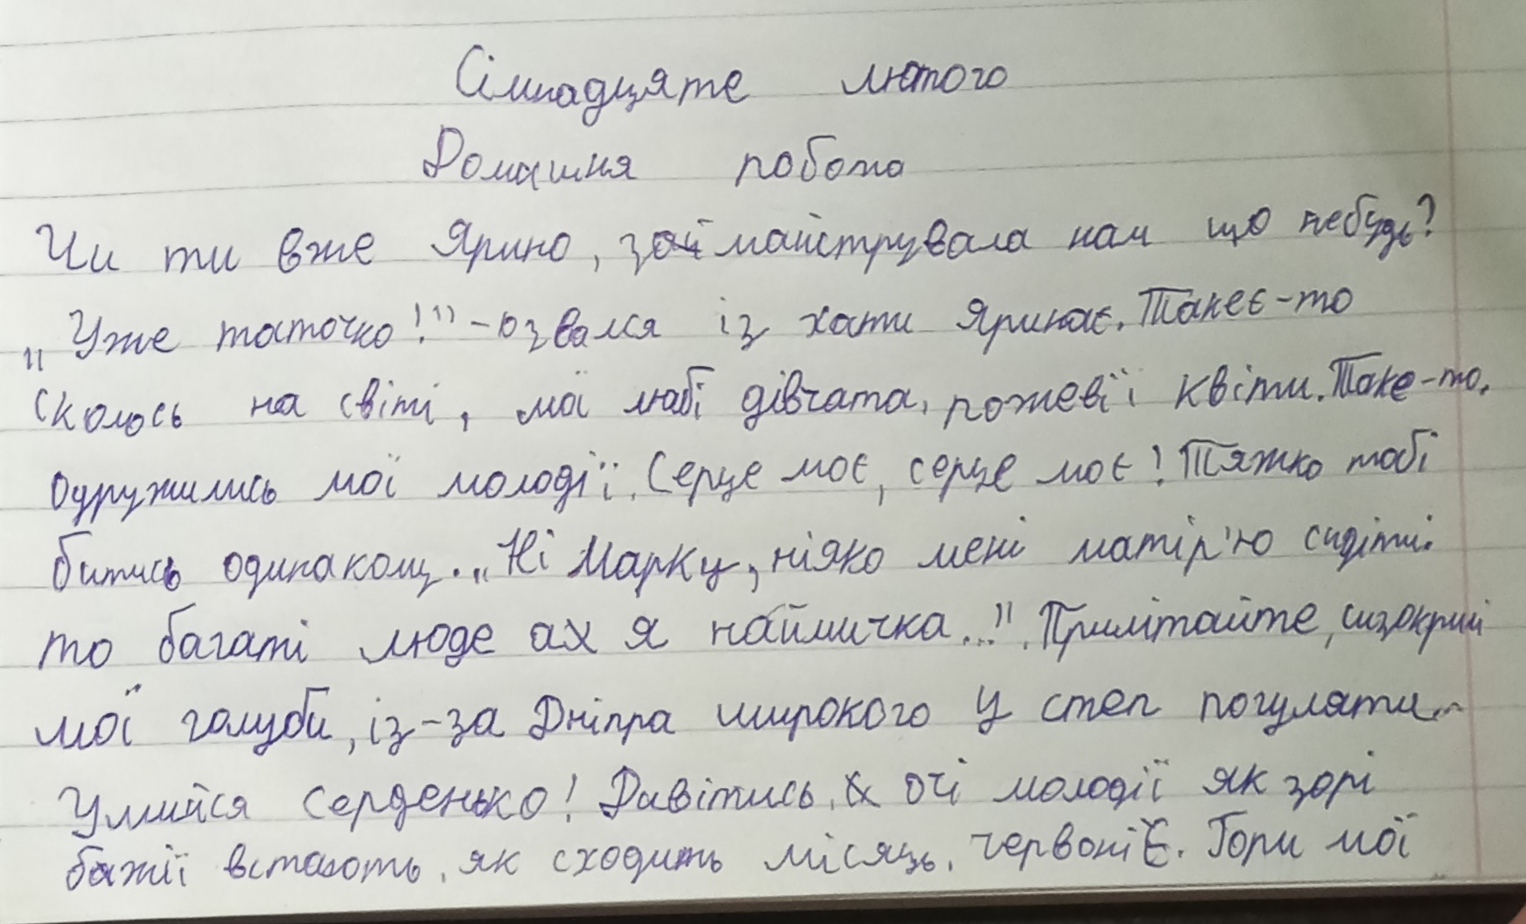 Сімнадцяте лютого
Домашня робота
Чи ти вже Ярино, змайструвала нам що небудь?
„Уже таточко!"-озвалася із хати Яринає. Такеє-то
Сколось на світі, мої любі дівчата, рожевії квіти. Таке-то.
Одружились мої молодії. Серце моє, серце моє! Тяжко тобі
битись одинакому. „Ні Марку, ніяко мені матір'ю сидіти.
то багаті люде ах я наймичка..." Прилітайте, сизокрилі
мої голуби, із-за Дніпра широкого у степ погуляти..
Умийся серденько! Дивітись, очі молодії як зорі
божії встають, як сходить місяць, червоніЄ. Гори мої